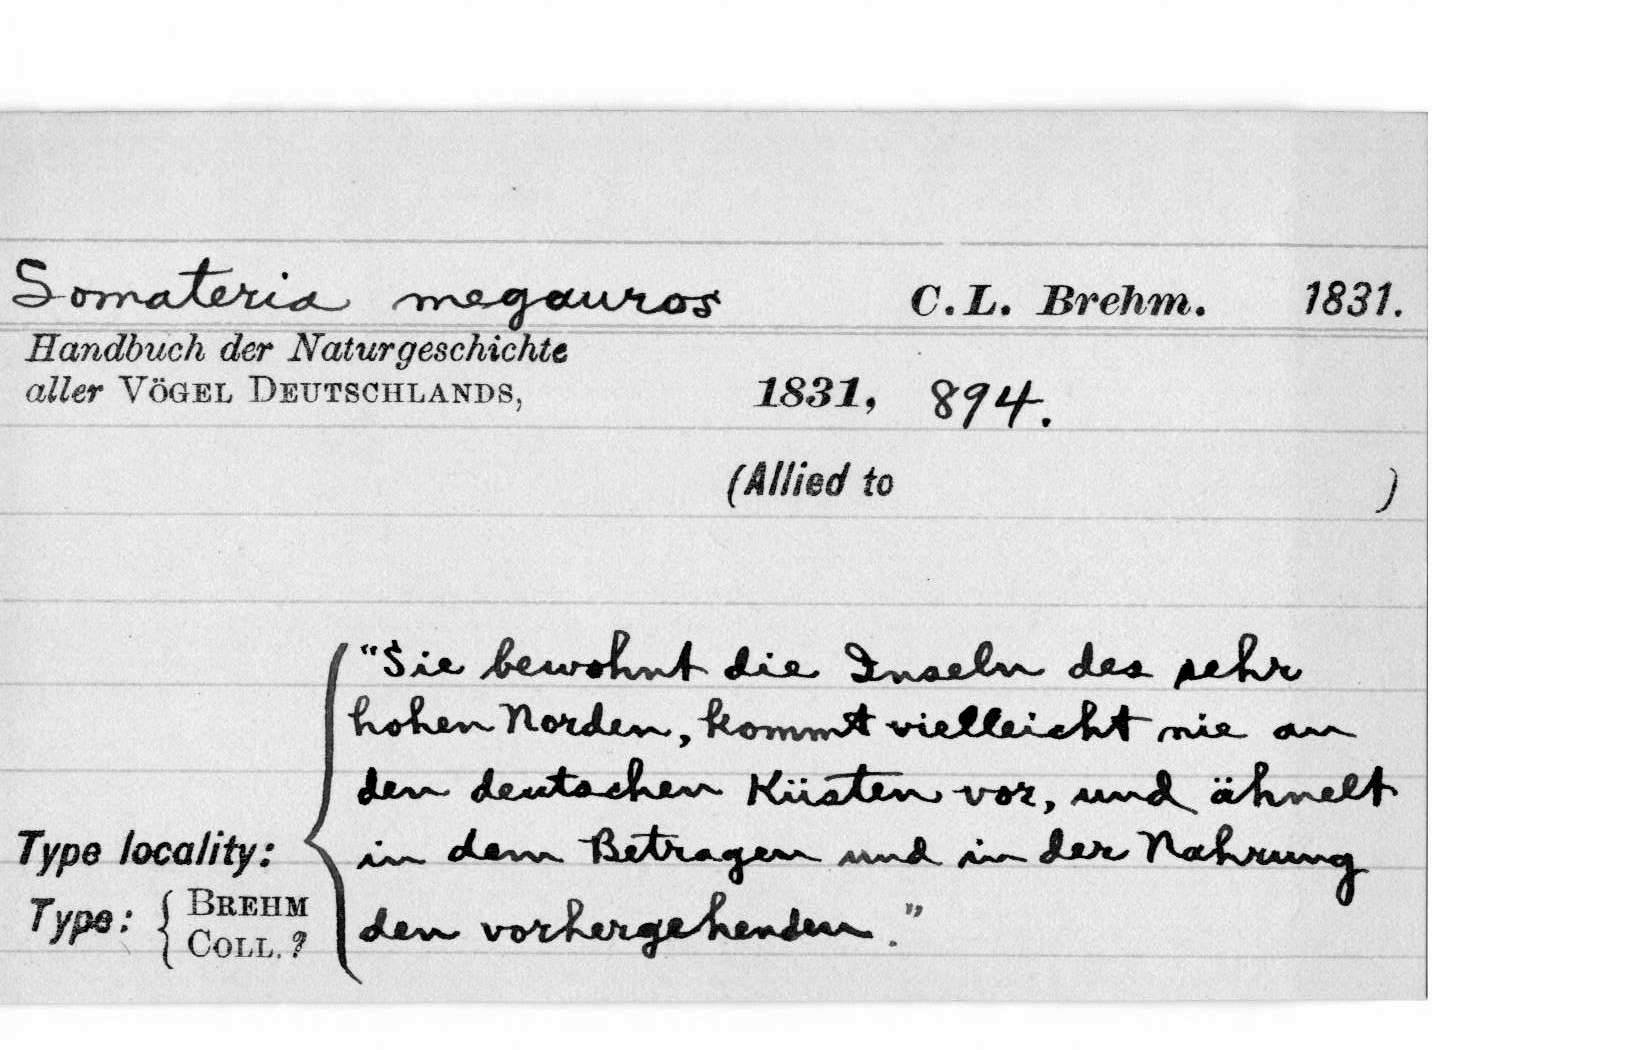 Somateria megauros C. L. Brehm. 1831.
Handbuch der Naturgeschichte
aller VÖGEL DEUTSCHLANDS, 1831, 894.
(Allied to )
"Sie bewohnt die Inseln des sehr
hohen Norden, kommt vielleicht nie an
den deutschen Küsten vor, und ähnelt
Type locality: in dem Betragen und in der Nahrung
Type: { BREHM COLL. ? den vorhergehenden."